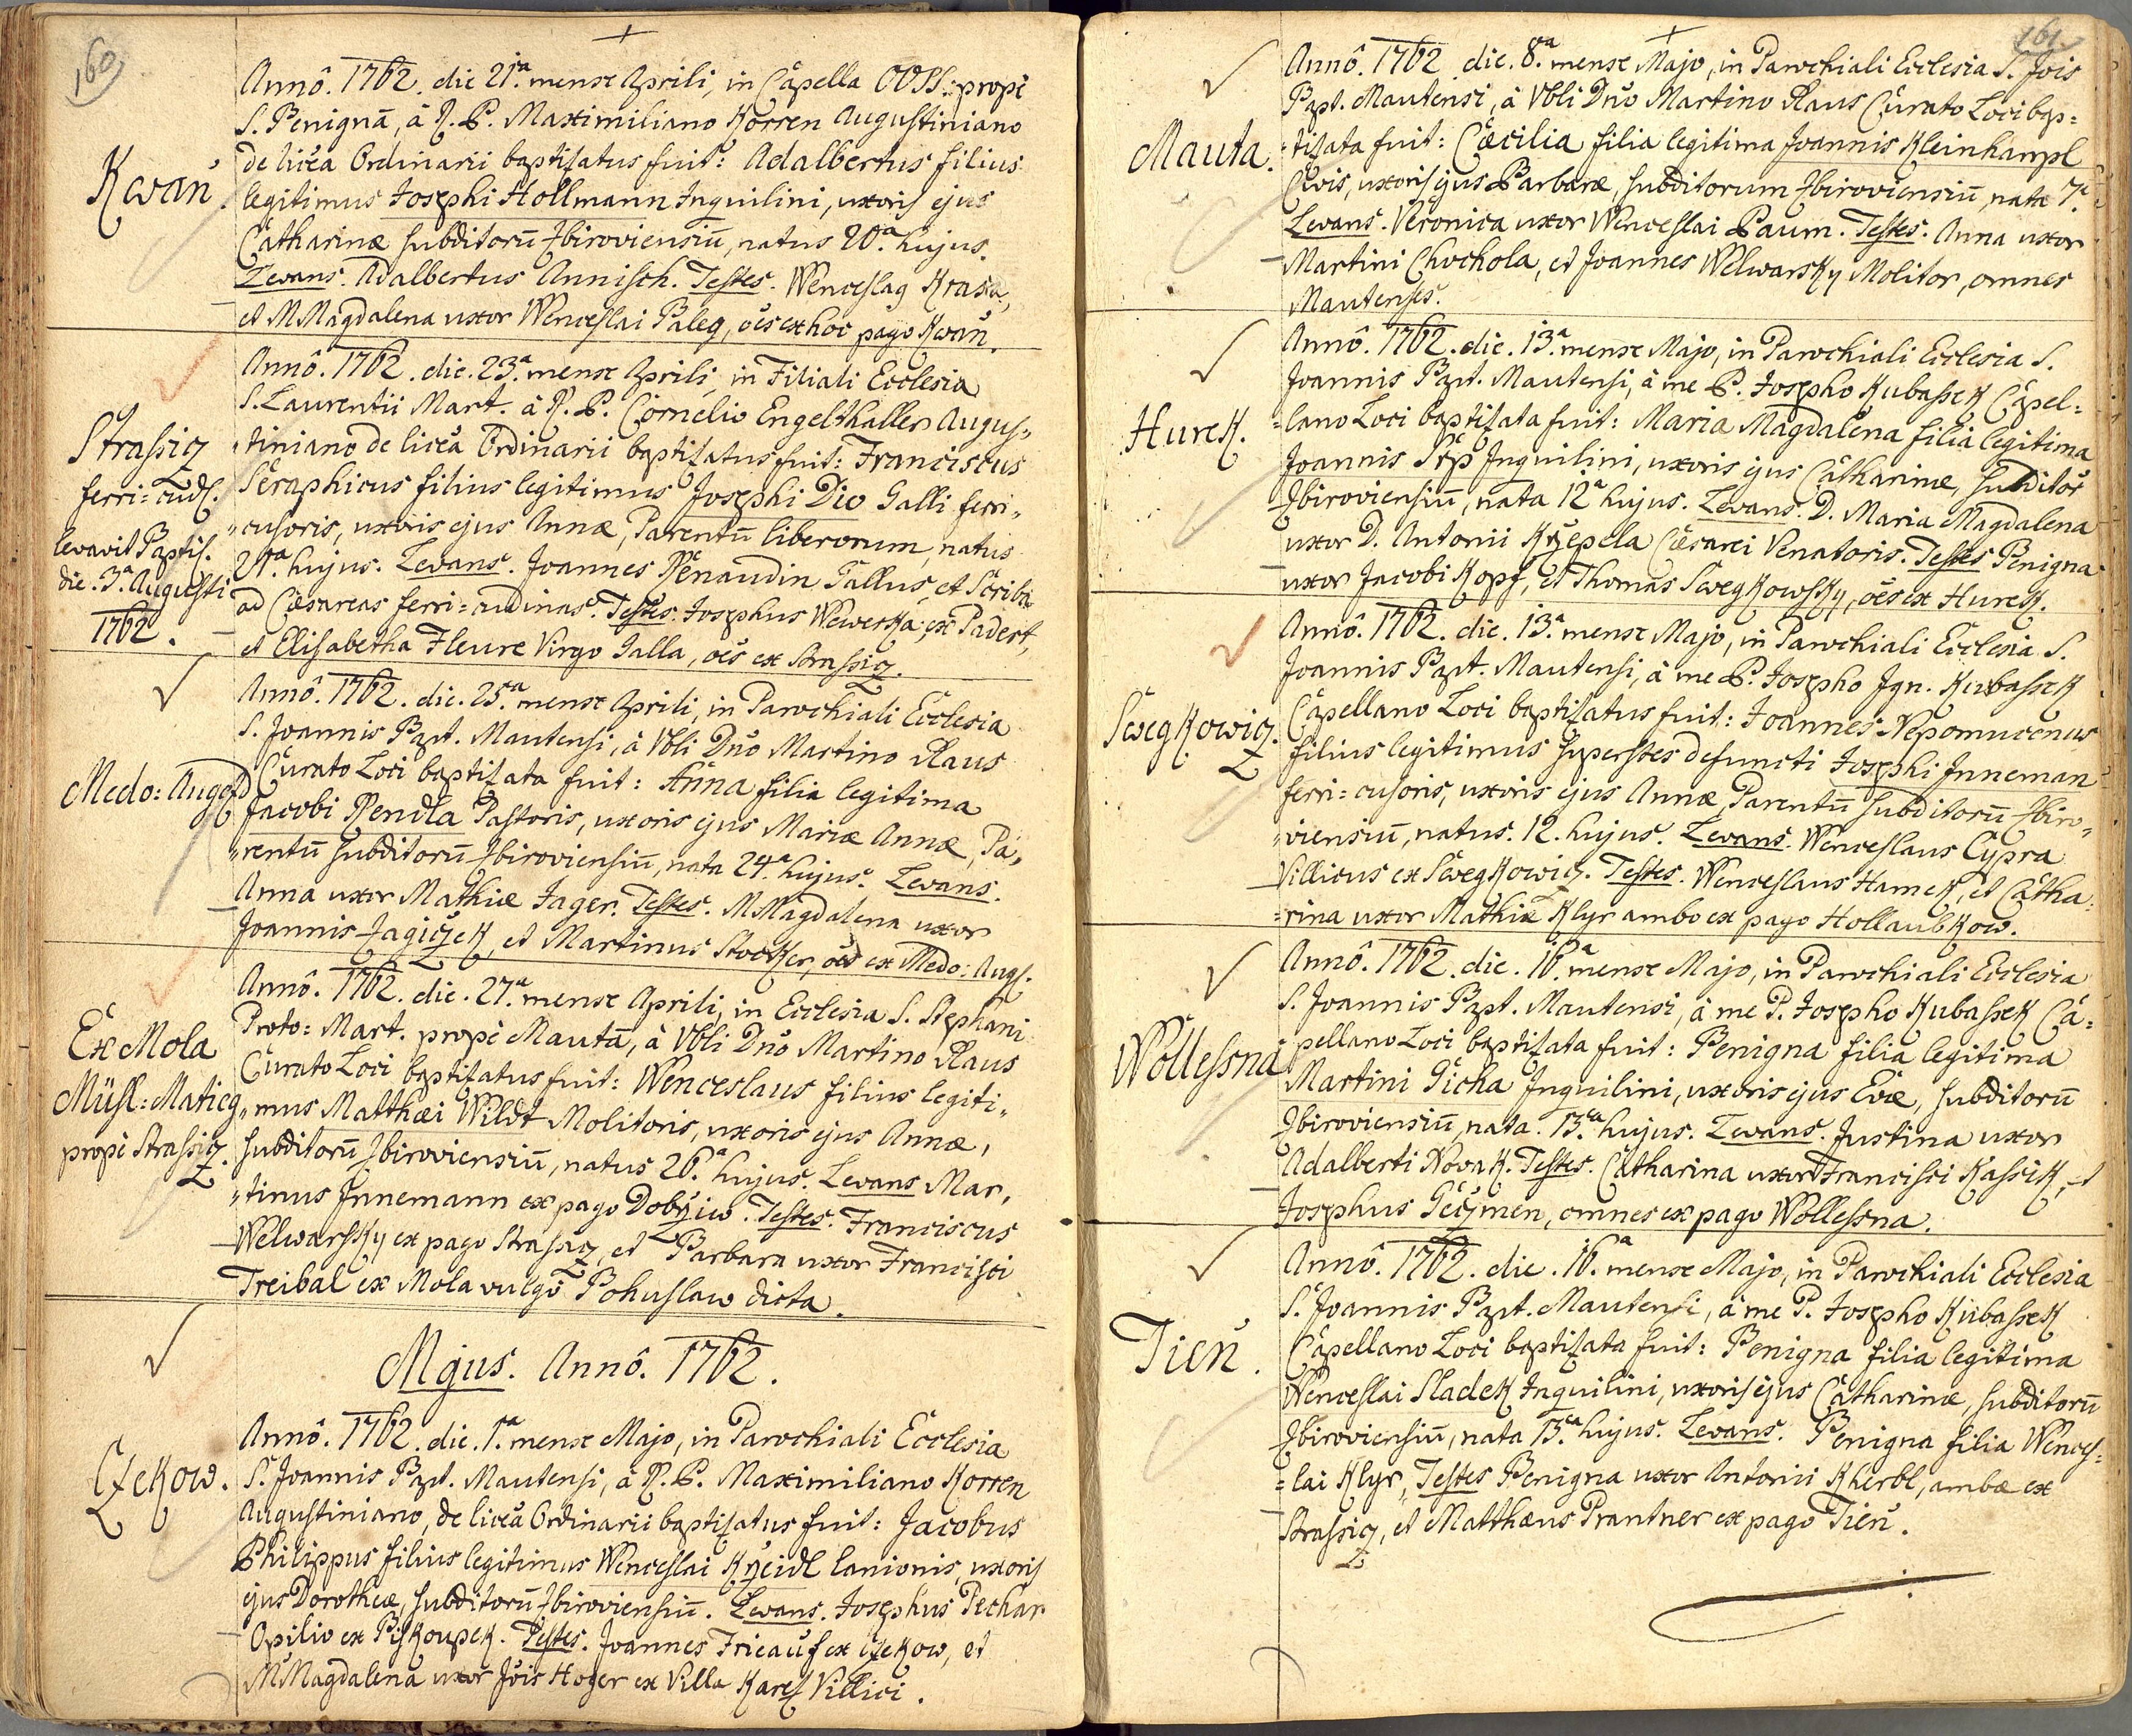 160
Kwaň.
Annô. 1762. die 21ª mense Aprili, in Capella OOSS: propè
S. Benignã, à R. P. Maximiliano Korren Augustiniano
de licea Ordinarii baptisatus fuit: Adalbertus filius
legitimus Josephi Hollmann Inquilini, uxoris ejus
Catharinæ subditorũ Zbiroviensiũ, natus 20ª hujus.
Levans. Adalbertus Annisch. Testes. Wenceslaq Krasa,
et M Magdalena uxor Wenceslai Paleq, oes ex hoc pago Kwaň.
Strassiz
ferri=cud.
levavit Baptis.
die. 3ª Augusti
1762.
Annô. 1762. die. 23ª mense Aprili, in Filiali Ecclesia
S. Laurentii Mart. à R. P. Cornelio Engelthaller Augus„
„tiniano de licea Ordinarii baptisatus fuit: Franciscus
Seraphicus filius legitimus Josephi Dio Galli ferri„
„cusoris, uxoris ejus Annæ, Parentũ liberorum, natus
21ª hujus. Levans. Joannes Renaudin Gallus, et Scriba
ad Cæsareas ferri=cudinas. Testes. Josephus Wewerka ex Padert,
et Elisabetha Fleure Virgo Galla, oes ex Strassiz.
Medo: Augezd
Annô. 1762. die. 25ª mense Aprili, in Parochiali Ecclesia
S. Joannis Bapt. Mautensi, à Vbli Dno Martino Klaus
Curato Loci baptisata fuit: Anna filia legitima
Jacobi Rendla Pastoris, uxoris ejus Mariæ Annæ, Pa„
„rentũ subditorũ Zbiroviensiũ, nata 24ª hujus. Levans.
Anna uxor Mathiæ Jager. Testes. M Magdalena uxor
Joannis Zagiczek, et Martinus Stocker, oes ex Medo: Augz.
Ex Mola
Müsl: Maticq
propè Strassiz.
Annô. 1762. die. 27ª mense Aprili, in Ecclesia S. Stephani
Proto: Mart. propè Mautã, à Vbli Dno Martino Klaus
Curato Loci baptisatus fuit: Wenceslaus filius legiti„
„mus Matthæi Wildt Molitoris, uxoris ejus Annæ,
subditorũ Zbiroviensiũ, natus 26ª hujus. Levans Mar„
„tinus Innemann ex pago Dobrziw. Testes. Franciscus
Welwarsky ex pago Strassiz, et Barbara uxor Francisci
Treibal ex Mola vulgò Bohuslaw dicta.
Majus. Annô. 1762.
Czekow.
Annô. 1762. die. 1ª mense Majo, in Parochiali Ecclesia
S. Joannis Bapt. Mautensi, à R. P. Maximiliano Korren
Augustiniano, de licea Ordinarii baptisatus fuit: Jacobus
Philippus filius legitimus Wenceslai Krzeidl lanionis, uxoris
ejus Dorotheæ, subditorũ Zbiroviensiũ. Levans. Josephus Pechar
Opilio ex Piskoupek. Testes. Joannes Frieauf ex Czekow, et
M Magdalena uxor Jois Hozer ex Villa Karez Villici.
161
Mauta.
Annô. 1762 die. 8ª mense Majo, in Parochiali Ecclesia S. Jois
Bapt. Mautensi, à Vbli Dno Martino Klaus Curato Loci bap=
=tisata fuit: Cæcilia filia legitima Joannis Kleinhampl
Civis, uxoris ejus Barbaræ, subditorum Zbiroviensiũ, nata 7ª
Levans. Veronica uxor Wenceslai Baum. Testes. Anna uxor
Martini Chochola, et Joannes Welwarsky Molitor, omnes
Mautenses.
Hurek.
Annô. 1762. die. 13ª mense Majo, in Parochiali Ecclesia S.
Joannis Bapt. Mautensi, à me P. Josepho Kubassek Capel=
=lano Loci baptisata fuit: Maria Magdalena filia legitima
Joannis Srp Inquilini, uxoris ejus Catharinæ, subditor
Zbiroviensiũ, nata 12ª hujus. Levans. D. Maria Magdalena
uxor D. Antonii Krzepela Cæsarei Venatoris. Testes Benigna
uxor Jacobi Kopf, et Thomas Swegkowsky, oes ex Hurek.
Swegkowiz.
Annô. 1762. die. 13ª mense Majo, in Parochiali Ecclesia S.
Joannis Bapt. Mautensi, à me P. Josepho Ign. Kubassek
Capellano Loci baptisatus fuit: Joannes Nepomucenus
filius legitimus superstes defuncti Josephi Inneman
ferri=cusoris, uxoris ejus Annæ, Parentũ subditorũ Zbiro„
„viensiũ, natus. 12. hujus. Levans. Wenceslaus Cypra
Villicus ex Swegkowiz. Testes. Wenceslaus Hamek, et Catha:
=rina uxor Mathiæ Klyr ambo ex pago Hollaubkow.
Wollessna
Annô. 1762. die. 16ª mense Majo, in Parochiali Ecclesia
S. Joannis Bapt. Mautensi, à me P. Josepho Kubassek Ca=
pellano Loci baptisata fuit: Benigna filia legitima
Martini Gicha Inquilini, uxoris ejus Evæ, subditorũ
Zbiroviensiũ, nata. 15ª hujus. Levans. Justina uxor
Adalberti Nowak. Testes. Catharina uxor Francisci Kassik, et
Josephus Geczmen, omnes ex pago Wollessna.
Tieň.
Annô. 1762. die. 16ª mense Majo, in Parochiali Ecclesia
S. Joannis Bapt. Mautensi, à me P. Josepho Kubassek
Capellano Loci baptisata fuit: Benigna filia legitima
Wenceslai Sladek Inquilini, uxoris ejus Catharinæ, subditorũ
Zbiroviensiũ, nata 15ª hujus. Levans. Benigna filia Wences=
=lai Klyr, Testes Benigna uxor Antonii Kherbl, ambæ ex
Strassiz, et Matthæus Prantner ex pago Tieň.